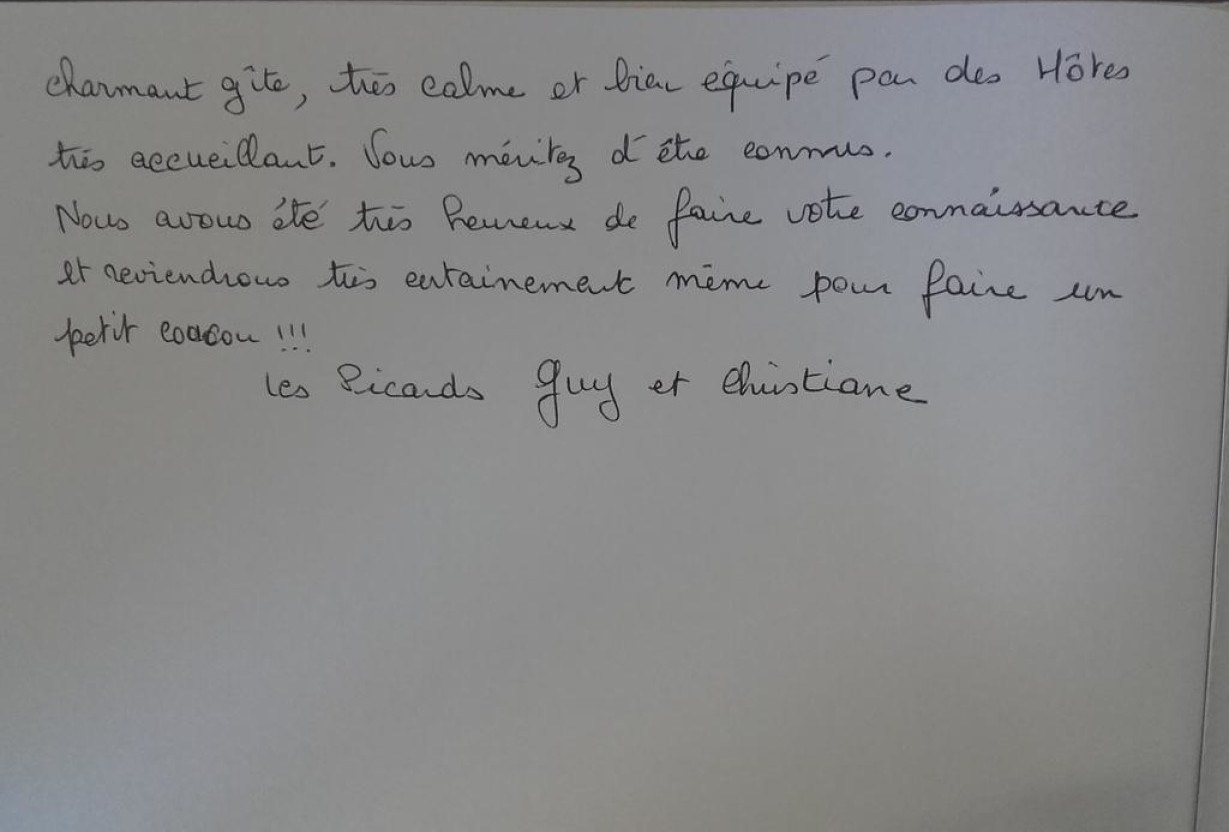 charmant gîte, très calme et bien équipé par des Hôtes
très accueillant. Vous méritez d'être connus.
Nous avons été très heureux de faire votre connaissance
et reviendrons très certainement même pour faire un
petit coucou !!!
Les Picards Guy et Christiane